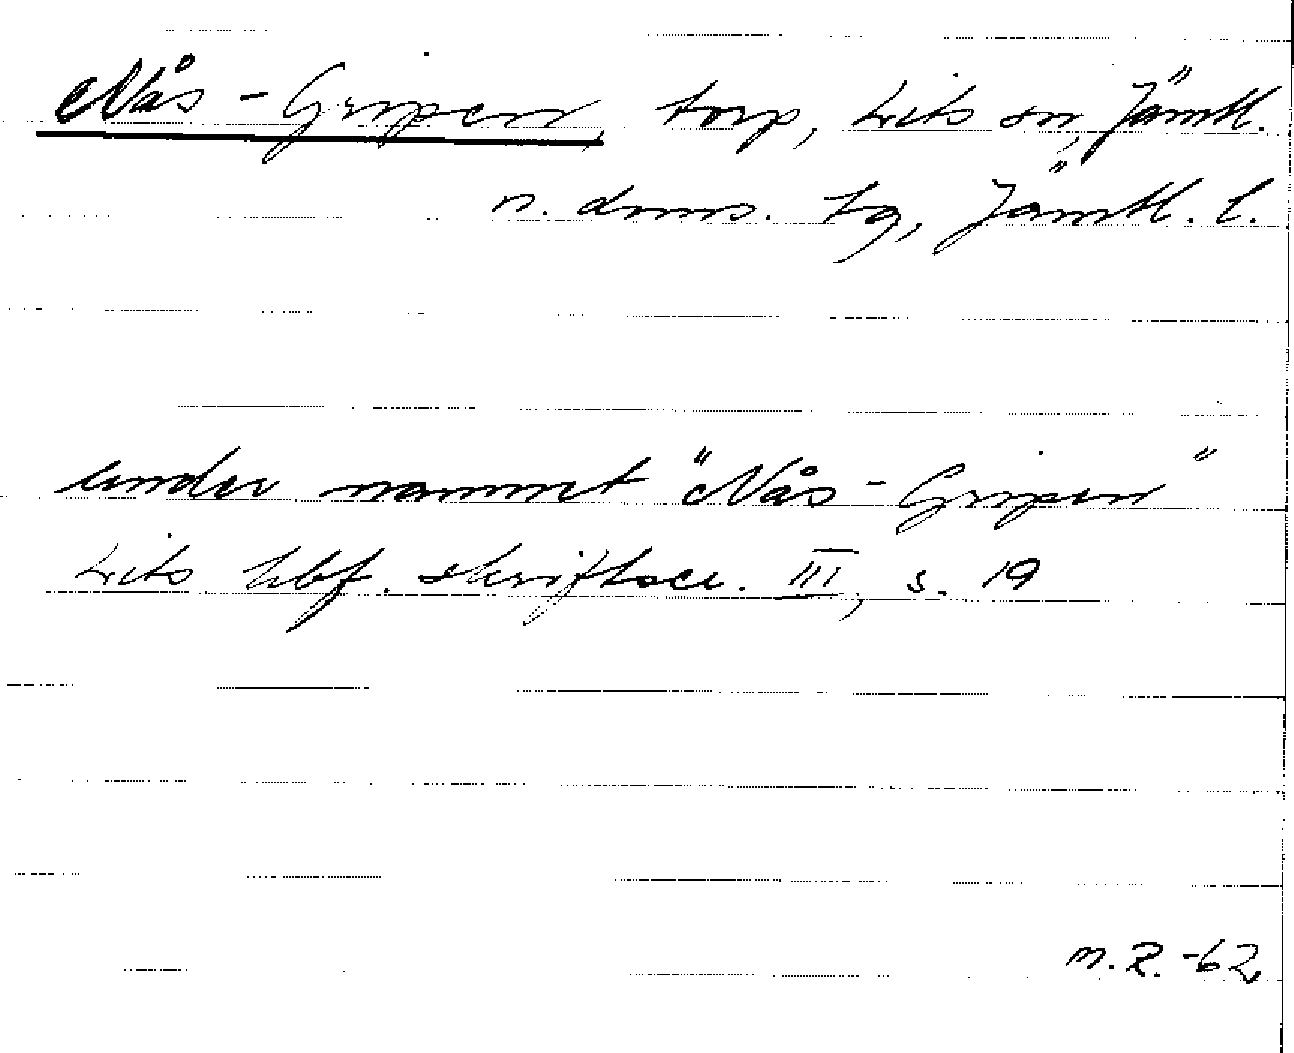 Nås-Gripen, torp, Lits sn, Jämtl.
n. doms. tg, Jämtl. l.
under namnet "Nås-Gripen"
Lits hbf. skriftser. III, s. 19
M.R. -62